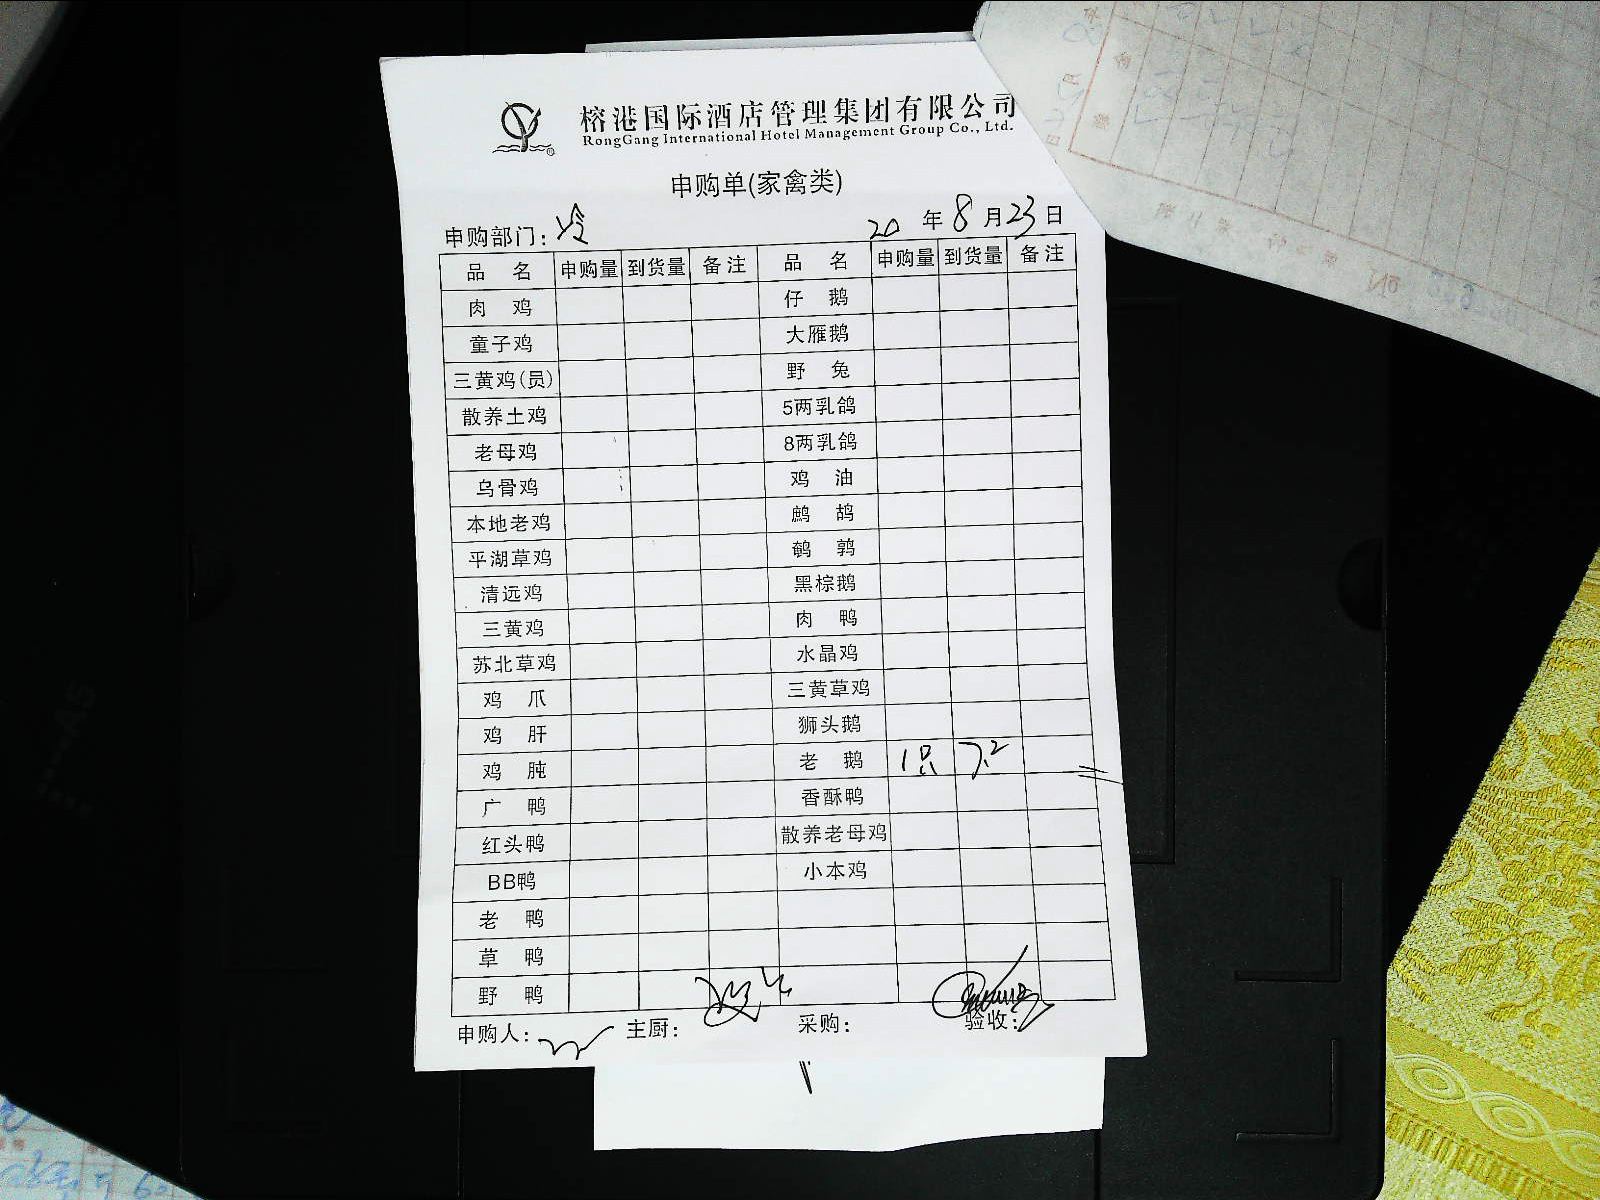 榕港国际酒店管理集团有限公司
RongGang International Hotel Management Group Co., Ltd.
申购单(家禽类)
申购部门：冷 20 年 8 月 23 日
品 名 申购量 到货量 备注 品 名 申购量 到货量 备注
肉 鸡 仔 鹅
童子鸡 大雁鹅
三黄鸡(员) 野 兔
散养土鸡 5两乳鸽
老母鸡 8两乳鸽
乌骨鸡 鸡 油
本地老鸡 鹧 鸪
平湖草鸡 鹌 鹑
清远鸡 黑棕鹅
三黄鸡 肉 鸭
苏北草鸡 水晶鸡
鸡 爪 三黄草鸡
鸡 肝 狮头鹅
鸡 肫 老 鹅 1只 7.2
广 鸭 香酥鸭
红头鸭 散养老母鸡
BB鸭 小本鸡
老 鸭
草 鸭
野 鸭
申购人： 主厨： 采购： 验收：